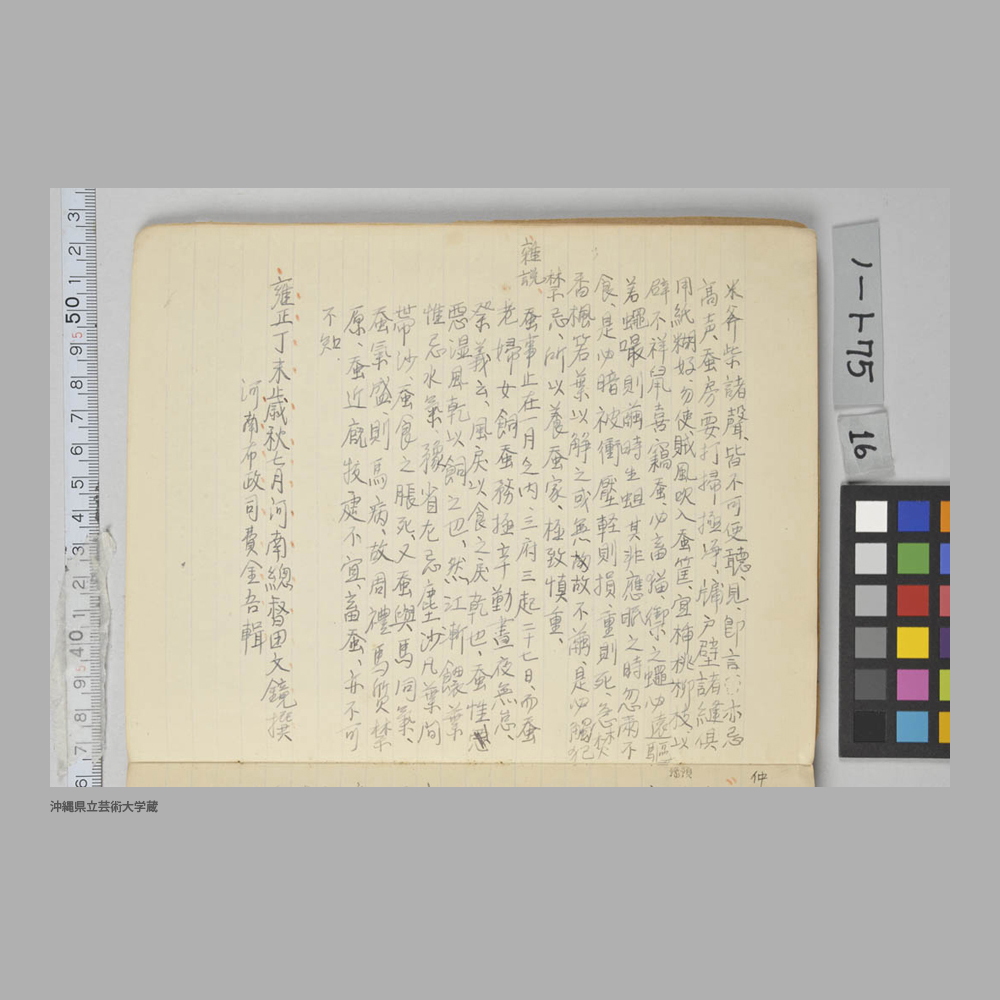 米斧柴諸聲、皆不可使聽見、即言語亦忌
高声、蚕房要打掃極淨、牖户壁諸縫俱
用紙糊好、勿使賊風吹入蚕筐、宜插桃柳枝、以
辟不祥鼠喜竊蚕必畜猫、禦之蠅必遠驅
若蠅嘬則繭時生蛆其非應眠之時忽而不
食、是必暗被衝壓、軽則損重則死、急焚
香楓箬葉以解之或無故不繭、是必觸犯
禁忌、所以養蚕家、極致慎重、
雜説
蚕事止在一月之内、三府三起二十七日、而蚕
老婦女飼蚕務極辛勤晝夜無怠、
祭義云、風戻以食之戻乾也、蚕性
惡湿風乾以飼之也、然江浙餵葉
惟忌水氣、豫省尤忌塵沙凡葉間
帶沙、蚕食之脹死、又蚕與馬同氣、
蚕氣盛、則馬病、故周禮馬質禁
原、蚕近廐牧處不宜、畜蚕、亦不可
不知、
雍正丁未歳秋七月河南總督田文鏡撰
河南布政司費金吾輯
仲
沖縄県立芸術大学蔵
ノート75
16